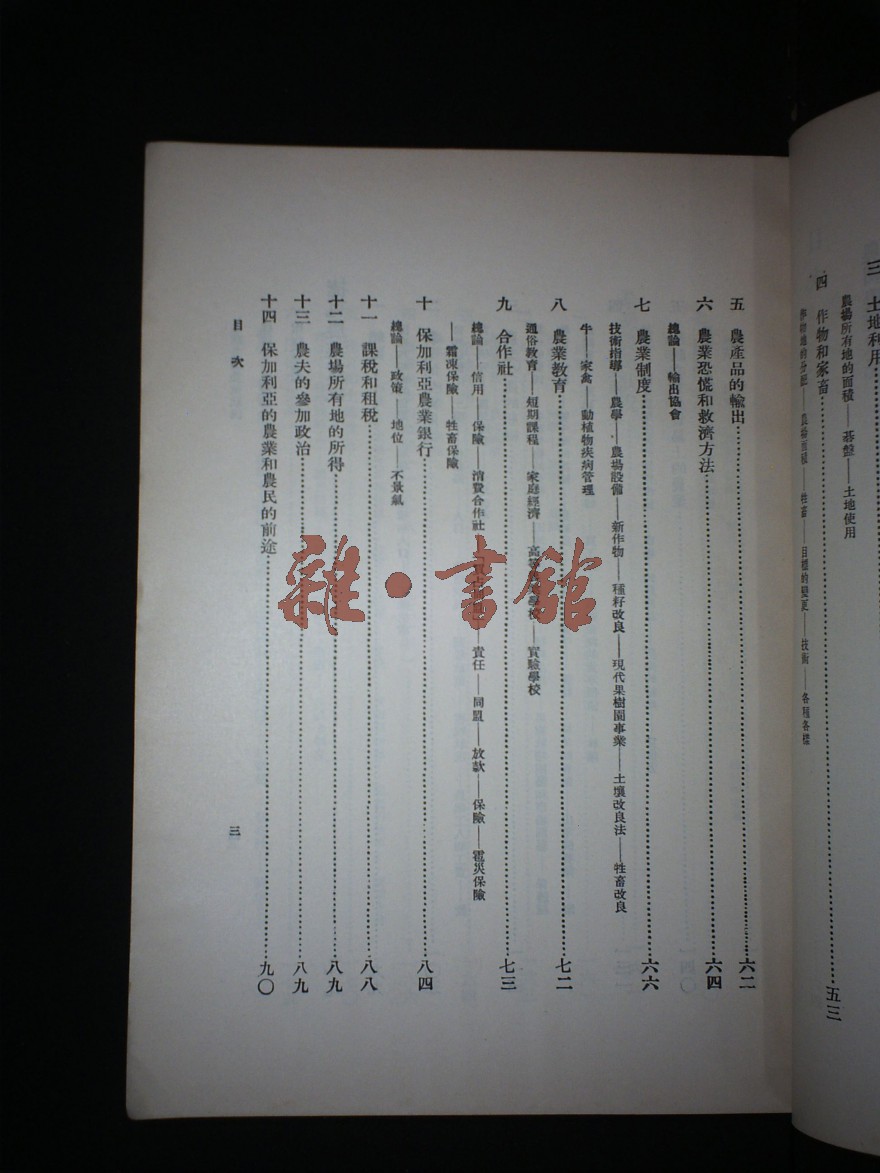 三 土地利用
農場所有地的面積——碁盤——土地使用
四 作物和家畜……五三
五 農產品的輸出……六二
六 農業恐慌和救濟方法……六四
總論——輸出協會
七 農業制度……六六
技術指導——農學——農場設備——新作物——種籽改良——現代果樹園事業——土壤改良法——牲畜改良
牛——家禽——動植物疾病管理
八 農業教育……七二
通俗教育——短期課程——家庭經濟——高等農業學校——實驗學校
九 合作社……七三
總論——信用——保險——消費合作社——責任——同盟——放款——保險——雹災保險
——霜凍保險——牲畜保險
十 保加利亞農業銀行……八四
總論——政策——地位——不景氣
十一 課稅和租稅……八八
十二 農場所有地的所得……八九
十三 農夫的參加政治……八九
十四 保加利亞的農業和農民的前途……九〇
目次
三
雜·書館